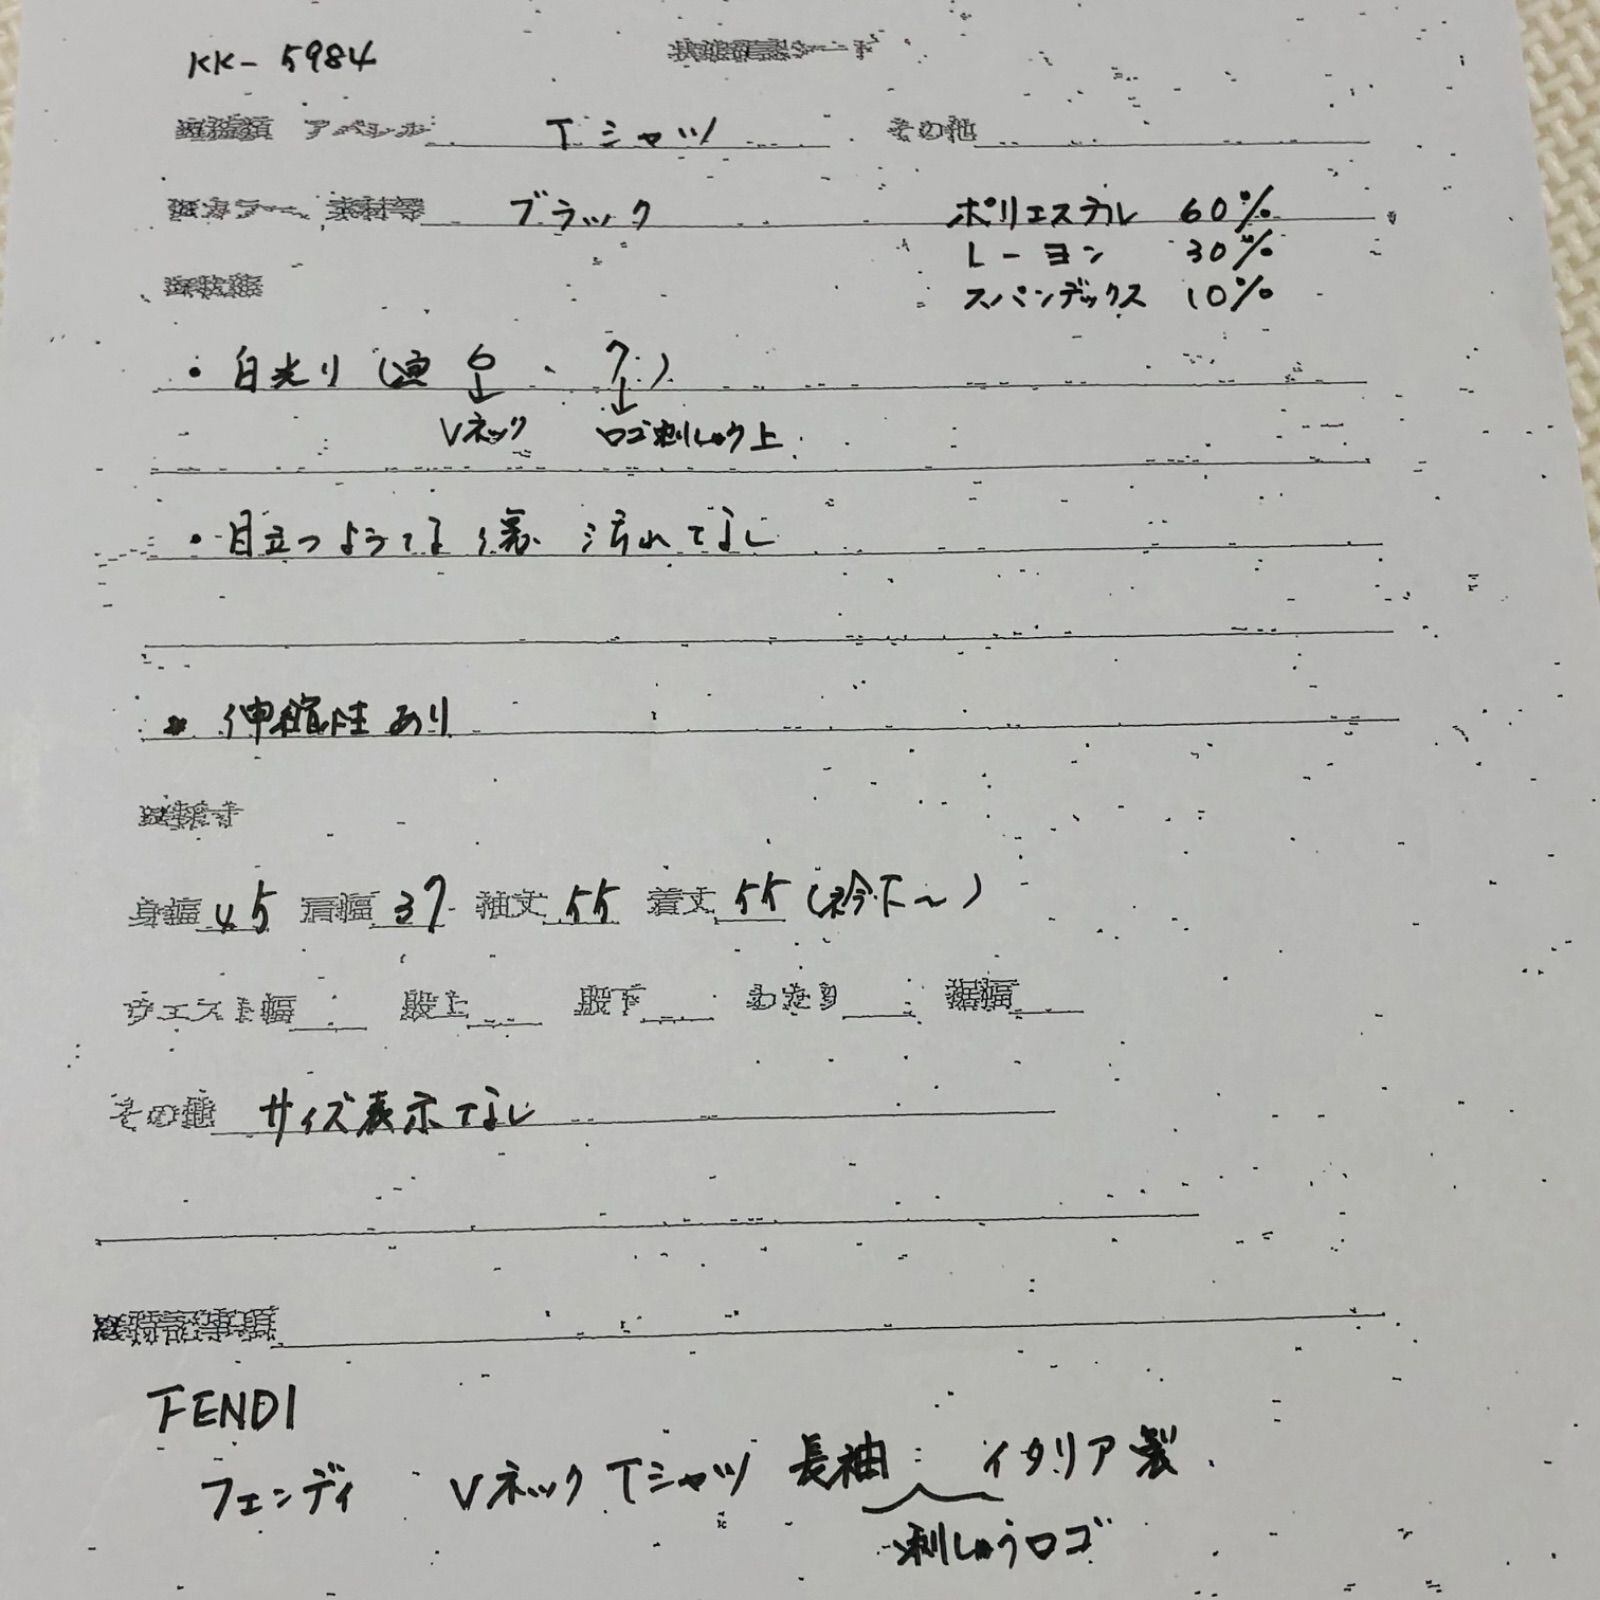 KK-5984
アパレル Tシャツ その他
カラー、素材等 ブラック ポリエステル 60%
レーヨン 30%
スパンデックス 10%
・白光り( 6、7)
Vネック ロゴ刺しゅう上
・目立つような傷 汚れなし
伸縮性あり
採寸
身幅 45 肩幅 37 袖丈 55 着丈 55(衿下〜)
ウエスト幅 股上 股下 わたり 裾幅
その他 サイズ表示なし
特記事項
FENDI
フェンディ Vネック Tシャツ 長袖 イタリア製
刺しゅうロゴ